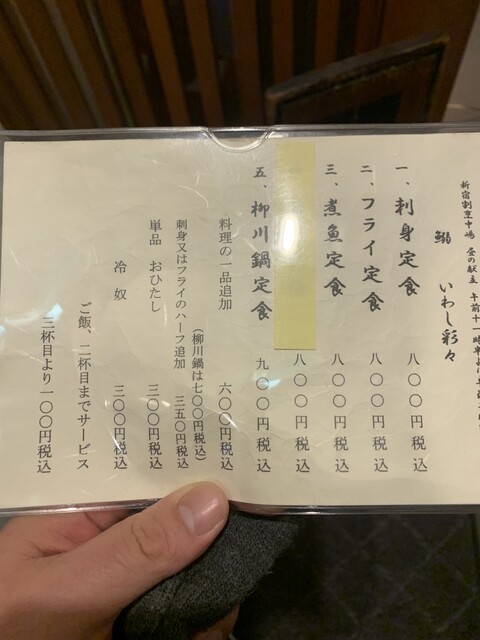 新宿割烹中嶋 昼の献立 午前十一時半より
鰯 いわし彩々
一、刺身定食 八〇〇円税込
二、フライ定食 八〇〇円税込
三、煮魚定食 八〇〇円税込
八〇〇円税込
五、柳川鍋定食 九〇〇円税込
料理の一品追加 六〇〇円税込
(柳川鍋は七〇〇円税込)
刺身又はフライのハーフ追加 三五〇円税込
単品 おひたし 三〇〇円税込
冷奴 三〇〇円税込
ご飯、二杯目までサービス
三杯目より一〇〇円税込